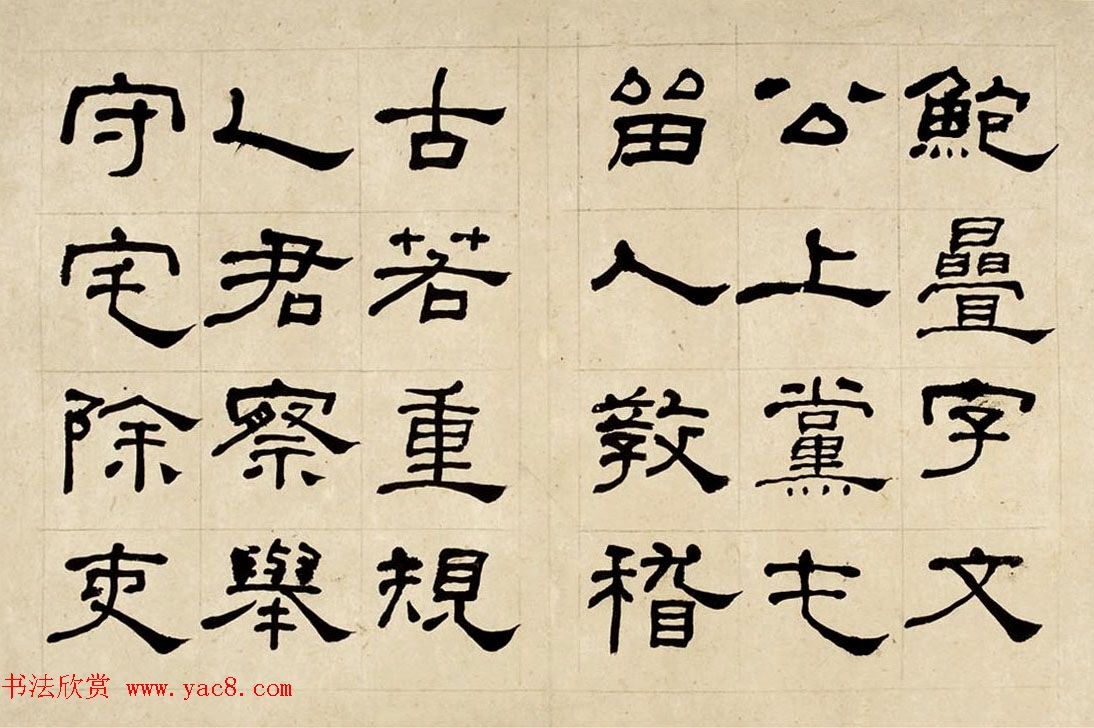 鮑疊字文
公上黨屯
留人敦稽
古若重規
人君察舉
守宅除吏
书法欣赏 www.yac8.com